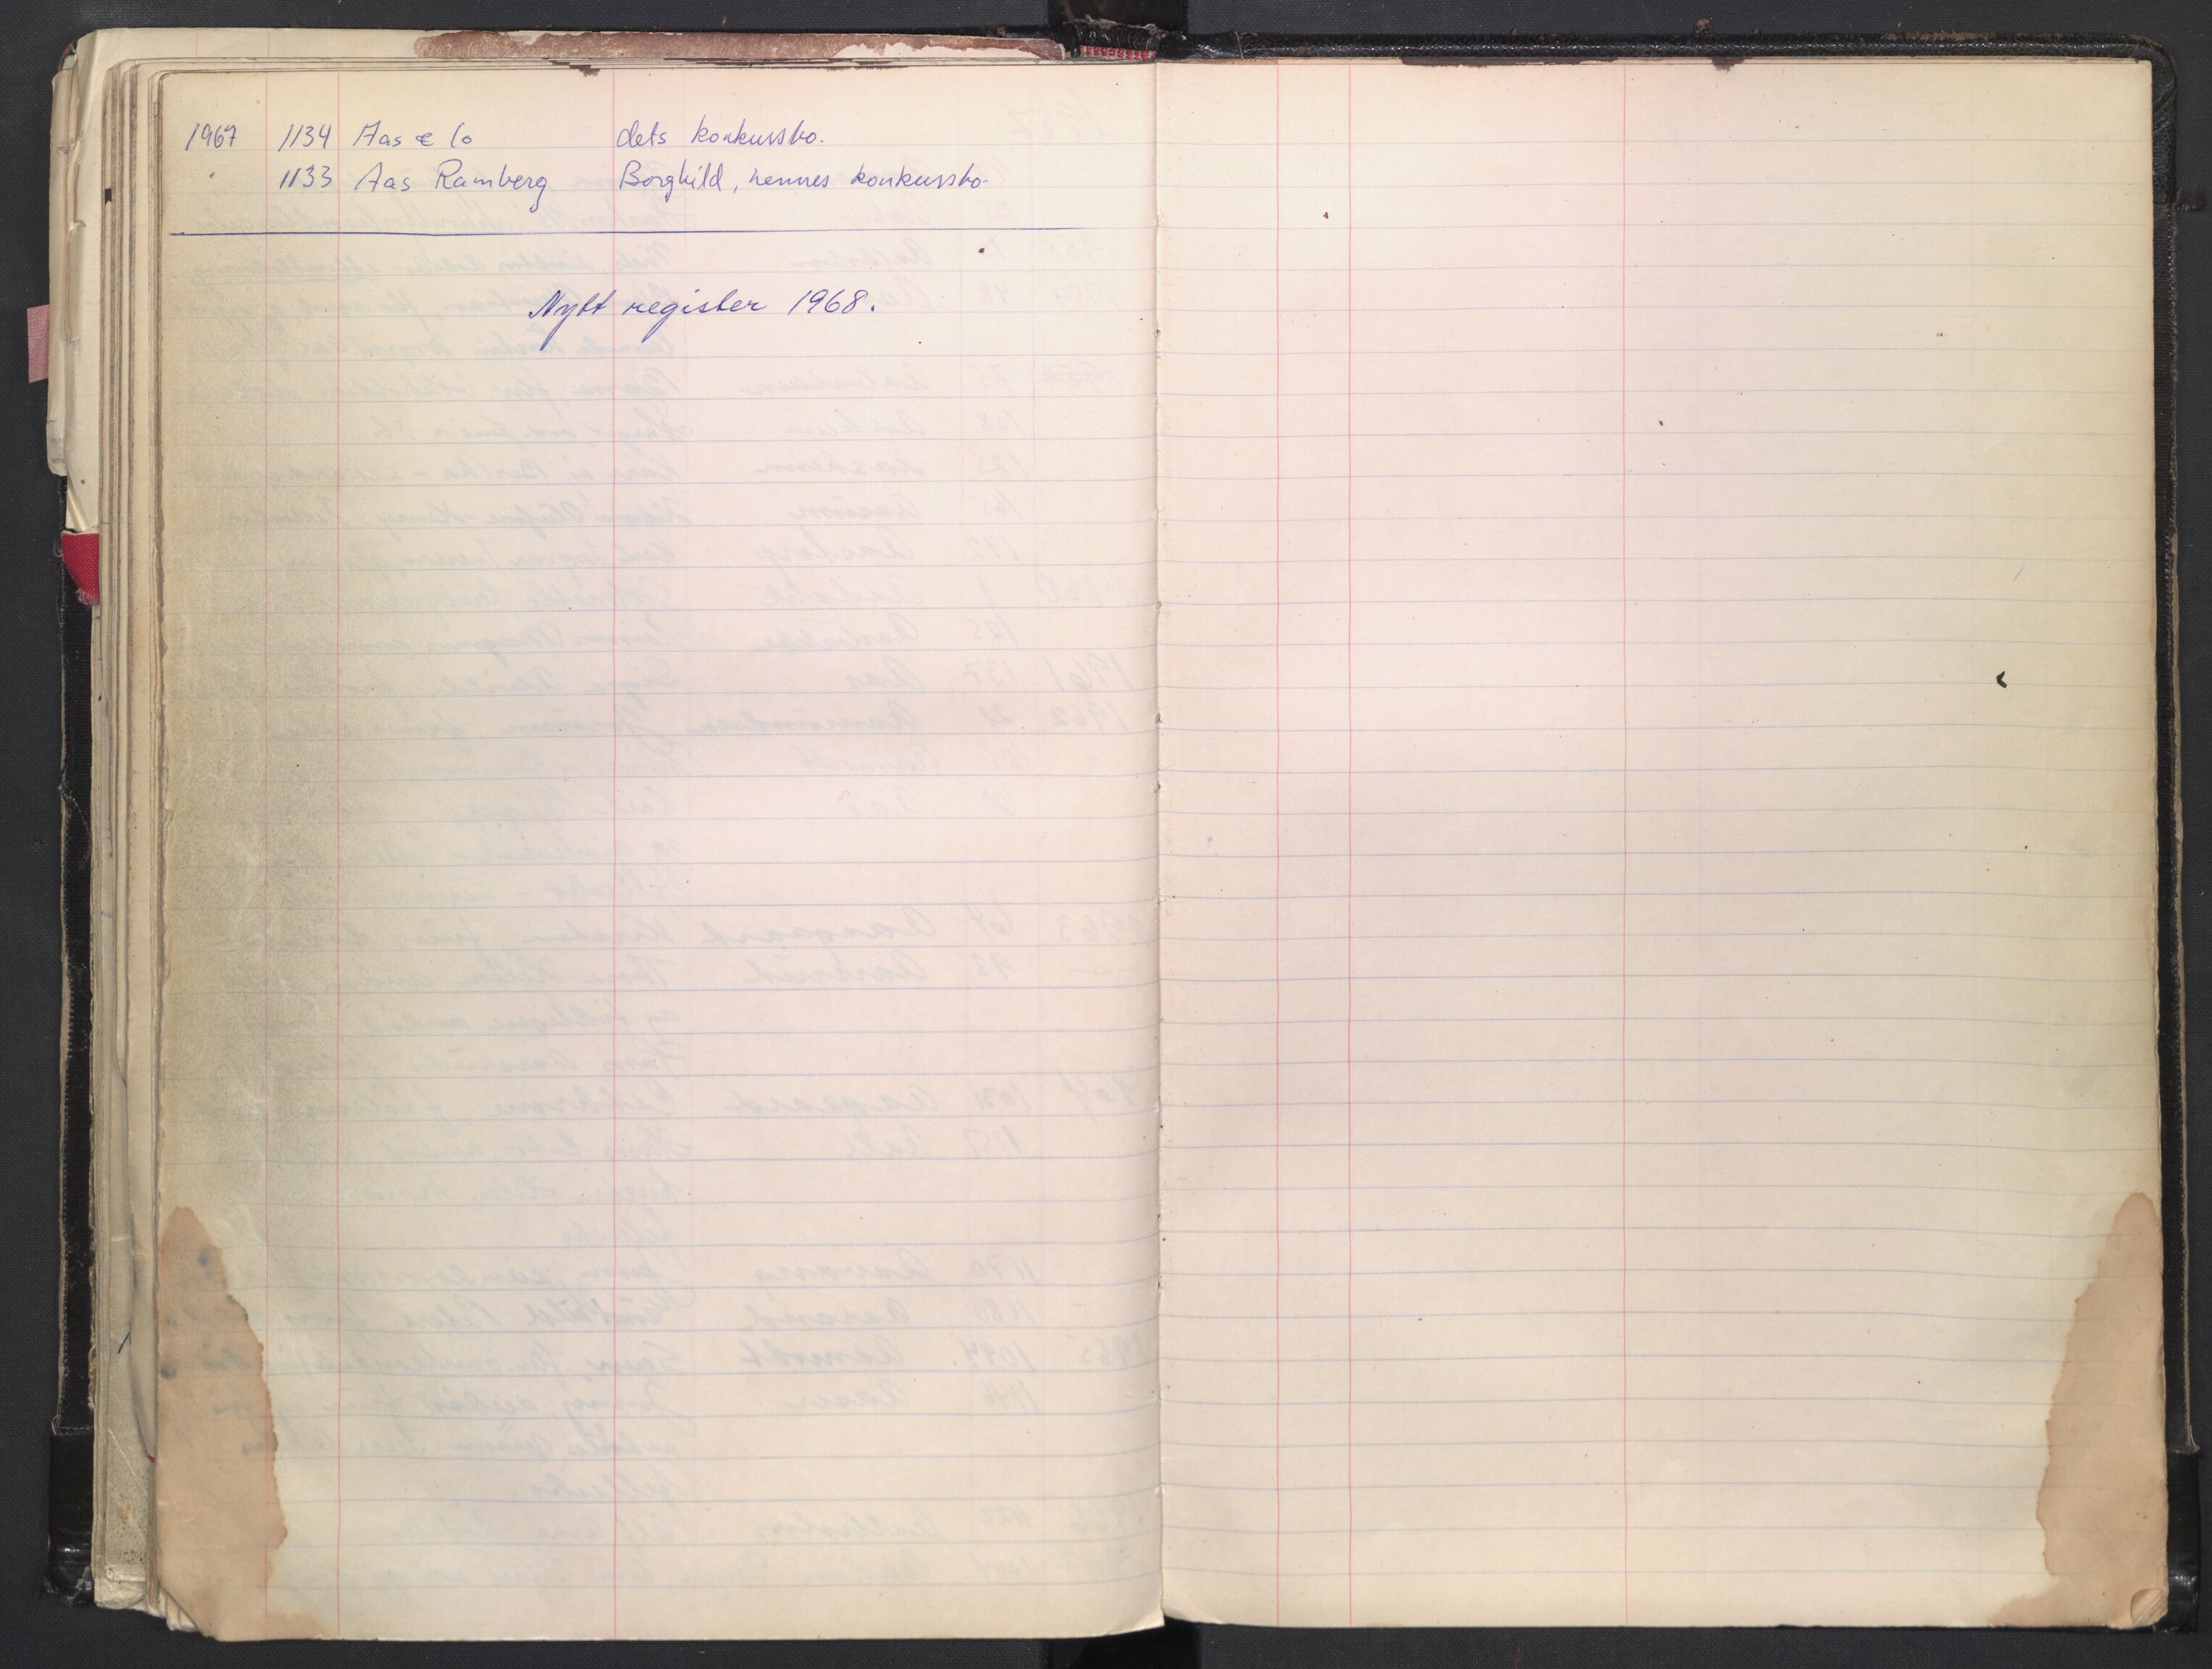 1967 1134 Aas & Co dets konkursbo.
" 1133 Aas Ramberg Borghild, hennes konkursbo.
Nytt register 1968.